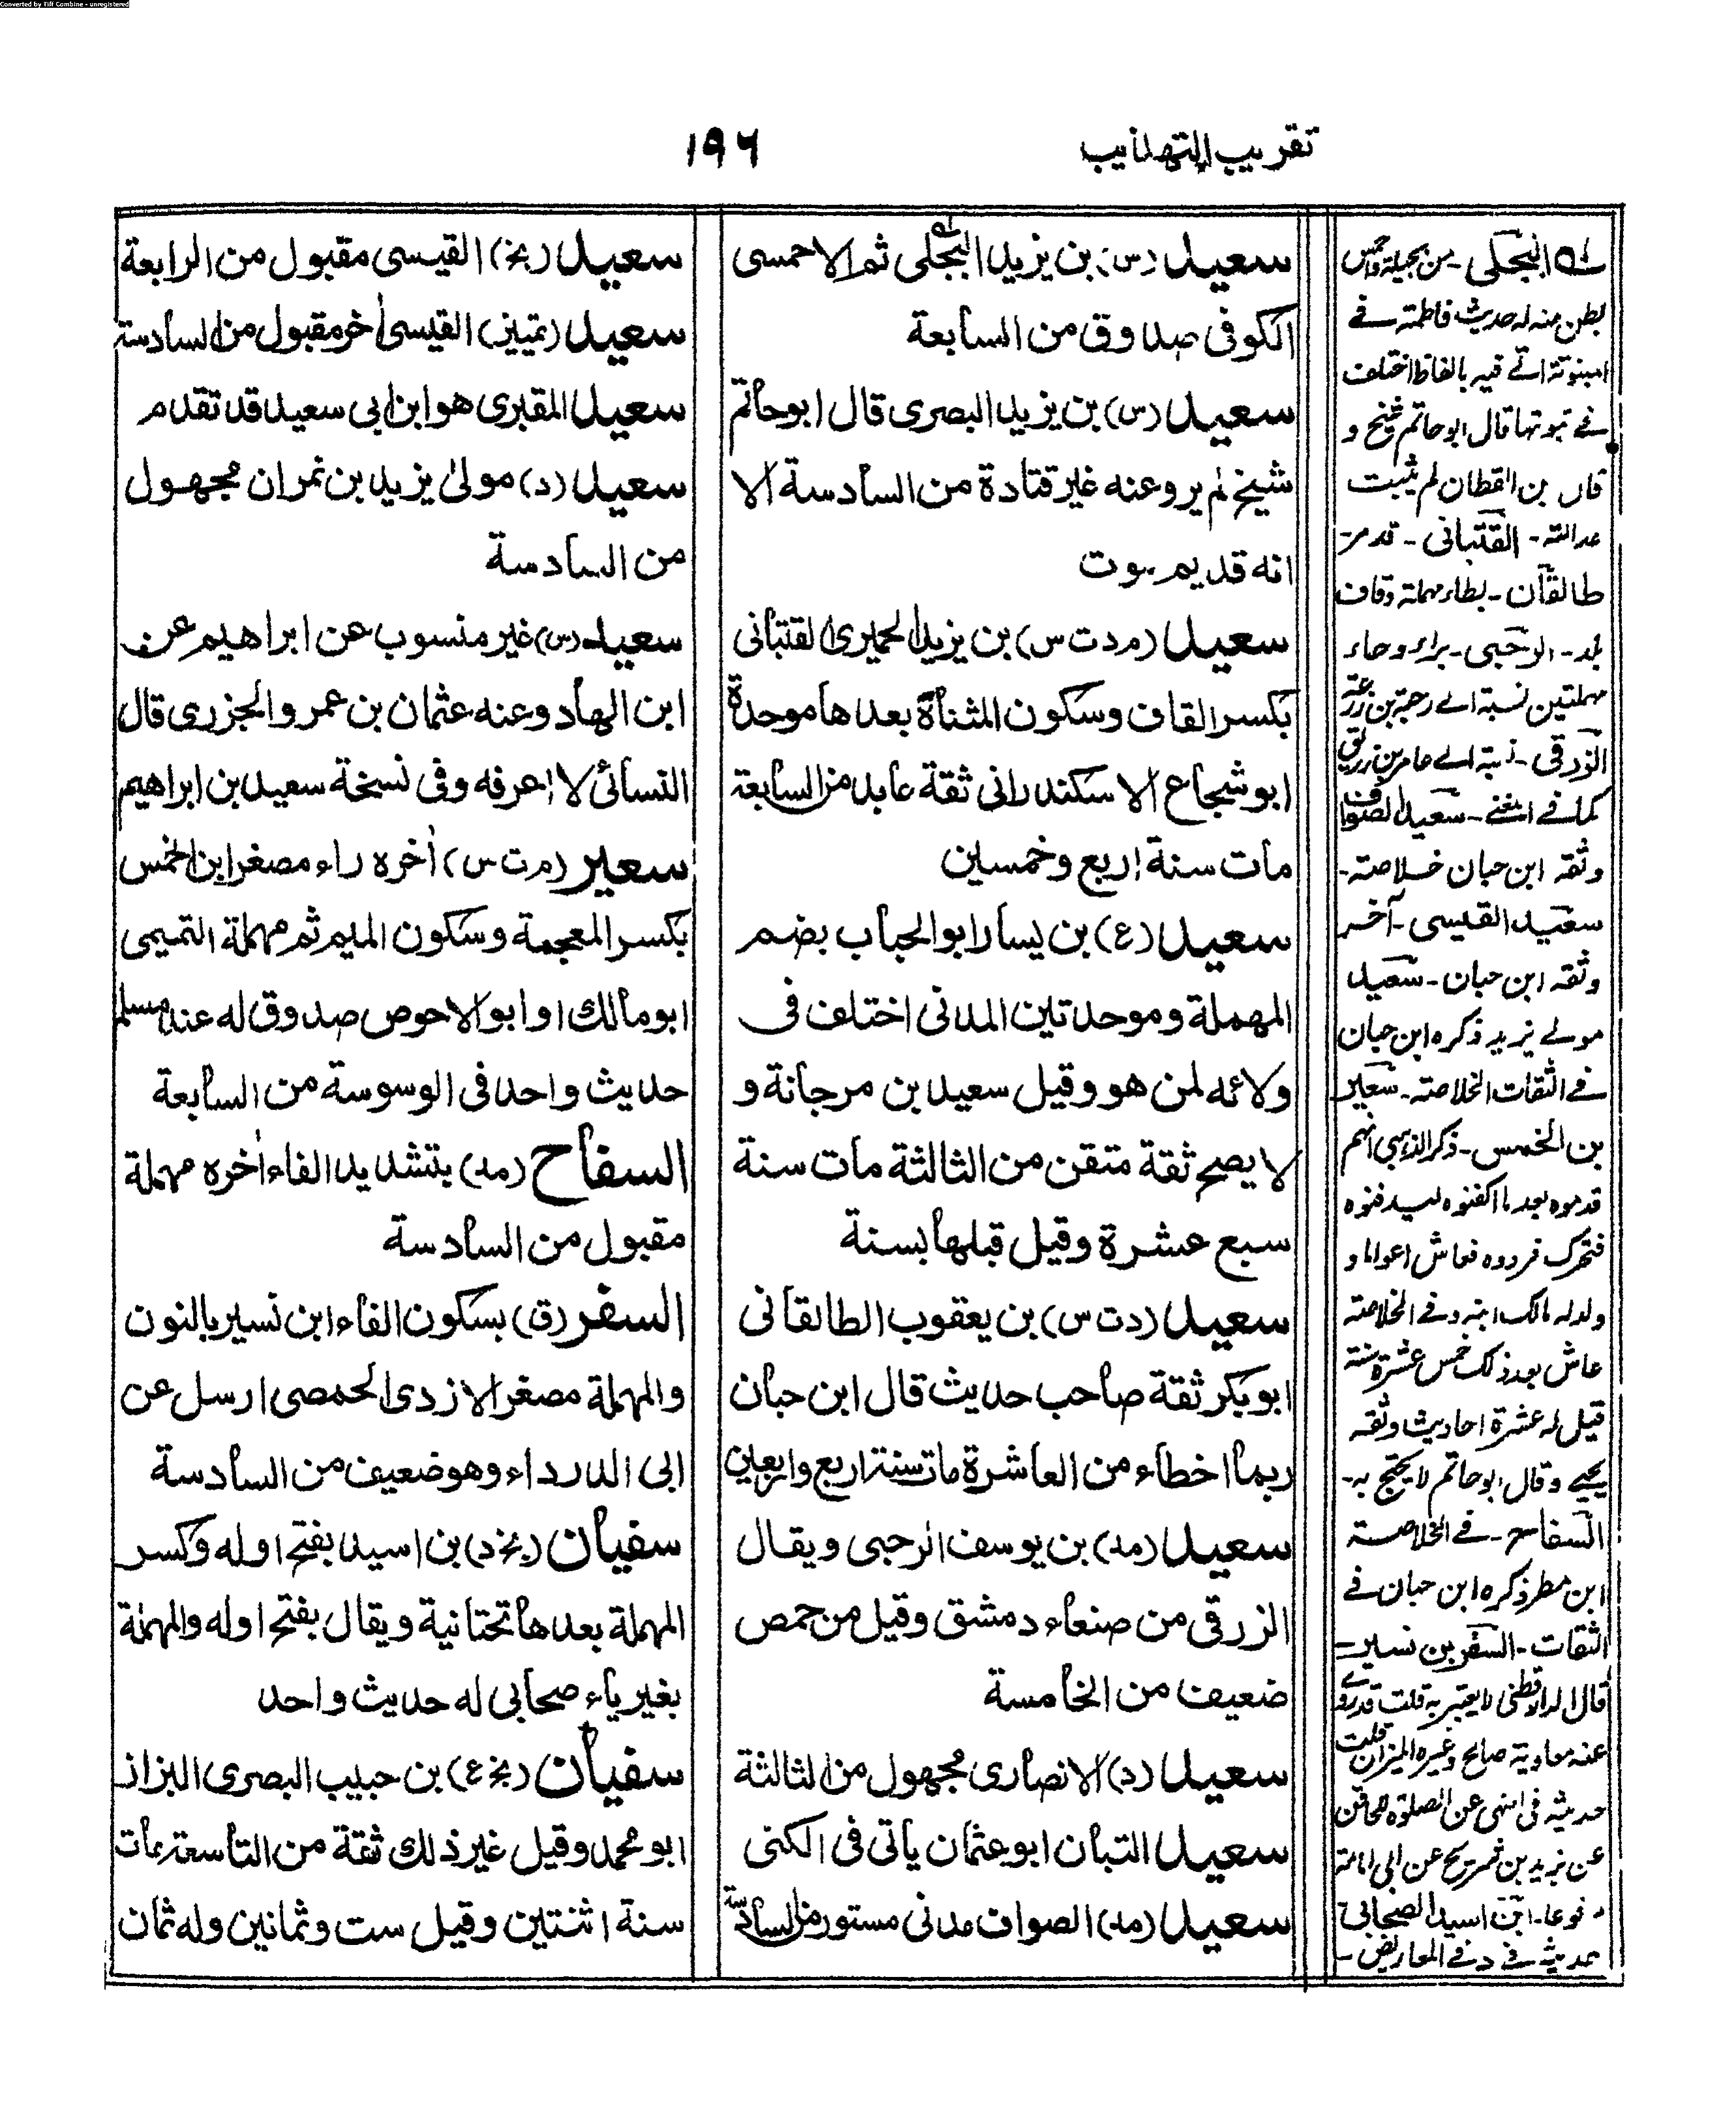 Converted by Tiff Combine - unregistered
تقريب التهذيب
١٩٦
سعيد (س) بن يزيد البجلى ثم الاحمسى
الكوفى صدوق من السابعة
سعيد (س) بن يزيد البصرى قال ابوحاتم
شيخ لم يرو عنه غير قتادة من السادسة الا
انه قديم موت
سعيد (م د ت س) بن يزيد الحميرى القتبانى
بكسر القاف وسكون المثناة بعدها موحدة
ابوشجاع الاسكندرانى ثقة عابد من السابعة
مات سنة اربع وخمسين
سعيد (ع) بن يسار ابو الحباب بضم
المهملة وموحدتين المدنى اختلف فى
ولائه لمن هو وقيل سعيد بن مرجانة و
لا يصح ثقة متقن من الثالثة مات سنة
سبع عشرة وقيل قبلها بسنة
سعيد (د ت س) بن يعقوب الطالقانى
ابو بكر ثقة صاحب حديث قال ابن حبان
ربما اخطاء من العاشرة مات سنة اربع واربعين
سعيد (مد) بن يوسف الرحبى ويقال
الزرقى من صنعاء دمشق وقيل من حمص
ضعيف من الخامسة
سعيد (د) الانصارى مجهول من الثالثة
سعيد التبان ابو عثمان يأتى فى الكنى
سعيد (مد) الصواف مدنى مستور من السادسة
سعيد (بخ) القيسى مقبول من الرابعة
سعيد (تمييز) القيسى اٰخر مقبول من السادسة
سعيد المقبرى هو ابن ابى سعيد قد تقدم
سعيد (د) مولىٰ يزيد بن نمران مجهول
من السادسة
سعيد (س) غير منسوب عن ابراهيم عن
ابن الهاد وعنه عثمان بن عمرو الجزرى قال
النسائى لا اعرفه وفى نسخة سعيد بن ابراهيم
سعير (م ت س) اٰخره راء مصغر ابن الخمس
بكسر المعجمة وسكون الميم ثم مهملة التميمى
ابو مالك او ابو الاحوص صدوق له عند مسلم
حديث واحد فى الوسوسة من السابعة
السفاح (مد) بتشديد الفاء اٰخره مهملة
مقبول من السادسة
السفر (ق) بسكون الفاء ابن نسير بالنون
والمهملة مصغر الازدى الحمصى ارسل عن
ابى الدرداء وهو ضعيف من السادسة
سفيان (بخ د) بن اسيد بفتح اوله وكسر
المهملة بعدها تحتانية ويقال بفتح اوله والمهملة
بغير ياء صحابى له حديث واحد
سفيان (بخ ع) بن حبيب البصرى البزاز
ابو محمد وقيل غير ذلك ثقة من التاسعة مات
سنة اثنتين وقيل ست وثمانين وله ثمان
له البجلى - من بجيلة واحمس
بطن منه له حديث فاطمة فى
فيه بالفاظ اختلف
فى ثبوتها قال ابو حاتم شيخ و
قال بن القطان لم يثبت
عدالته - القتبانى -
طالقان - بطاء مهملة وقاف
بلد - الرحبى - براء وحاء
مهملتين نسبة الى رحبة بن زرعة
الزرقى - نسبة الى عامر بن زريق
كما فى المغنى - سعيد الصواف
وثقه ابن حبان خلاصة -
سعيد القيسى - آخر
وثقه ابن حبان - سعيد
مولى يزيد ذكره ابن حبان
فى الثقات الخلاصة - سعير
بن الخمس - ذكر الذهبى انهم
قدموه بعد ما اكفنوه ليدفنوه
فتحرك فردوه فعاش اعواما و
ولد له مالك ابنه وفى الخلاصة
عاش بعد ذلك خمس عشرة سنة
قيل له عشرة احاديث وثقه
يحيى وقال ابو حاتم لا يحتج به -
السفاح - فى الخلاصة
ابن مطر ذكره ابن حبان فى
الثقات - السفر بن نسير -
قال الدارقطنى لا يعتبر به قلت قد روى
عنه معاوية صالح وغيره الميزان قلت
حديثه فى النهى عن الصلوة للحاقن
عن يزيد بن شريح عن ابى امامة
ابن اسيد الصحابى
حديثه فى د فى المعاريض -